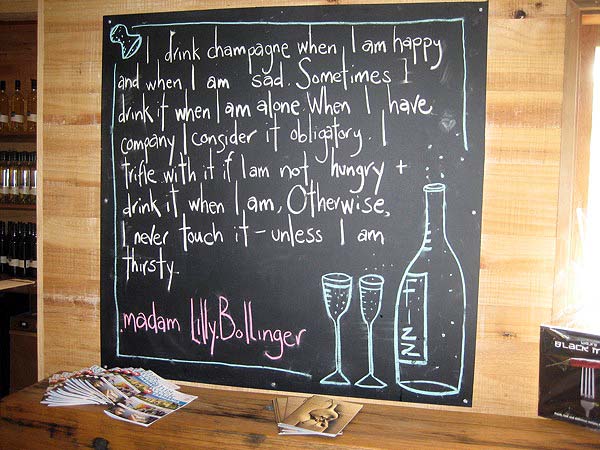 I drink champagne when I am happy
and when I am sad. Sometimes I
drink it when I am alone. When I have
company I consider it obligatory. I
trifle with it if I am not hungry +
drink it when I am, Otherwise,
I never touch it - unless I am
thirsty.
madam Lilly.Bollinger
FIZZ
BLACK